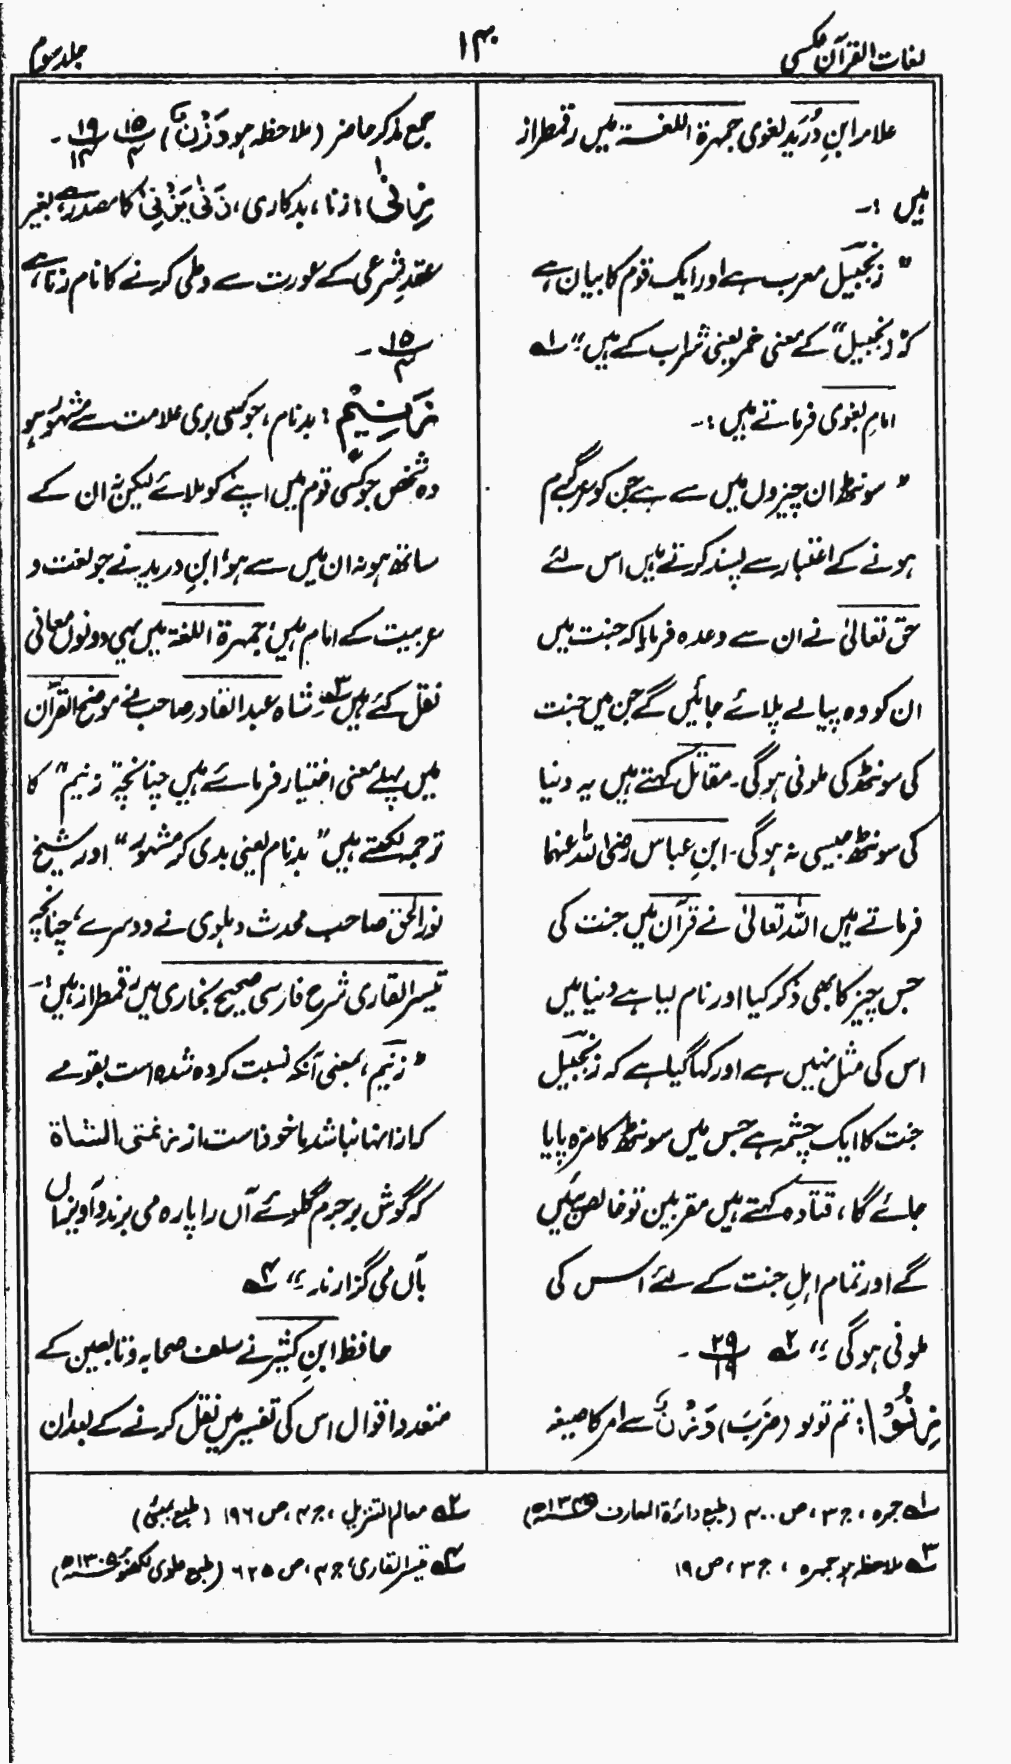 لغات القرآن عکسی
۱۴۰
جلد سوم
علامہ ابنِ دُرَید لغوی جمہرۃ اللغۃ میں رقمطراز
ہیں :۔
" زنجبیل معرب ہے اور ایک قوم کا بیان ہے
کہ" زنجبیل" کے معنی خمر یعنی شراب کے ہیں" ؎۱
امامِ بغوی فرماتے ہیں :۔
" سونٹھ ان چیزوں میں سے ہے جن کو عرب گرم
ہونے کے اعتبار سے پسند کرتے ہیں اس لئے
حق تعالیٰ نے ان سے وعدہ فرمایا کہ جنت میں
ان کو وہ پیالے پلائے جائیں گے جن میں جنت
کی سونٹھ کی ملونی ہوگی۔ مقاتل کہتے ہیں یہ دنیا
کی سونٹھ جیسی نہ ہوگی۔ ابنِ عباس رضی اللہ عنہما
فرماتے ہیں اللہ تعالیٰ نے قرآن میں جنت کی
جس چیز کا بھی ذکر کیا اور نام لیا ہے دنیا میں
اس کی مثل نہیں ہے اور کہا گیا ہے کہ زنجبیل
جنت کا ایک چشمہ ہے جس میں سونٹھ کا مزہ پایا
جائے گا، قتادہ کہتے ہیں مقربین تو خالص پئیں
گے اور تمام اہلِ جنت کے لئے اس کی
ملونی ہوگی" ؎۲ ۲۹/۱۹ ۔
زِنُوْا: تم تولو (ضَرَبَ) وَزْنٌ سے امر کا صیغہ
جمع مذکر حاضر (ملاحظہ ہو وَزْنٌ) ۱۵/۴ ۱۹/۱۴ ۔
زِنٰی: زنا، بدکاری، زَنٰی یَزْنِیْ کا مصدر ہے بغیر
عقدِ شرعی کے عورت سے وطی کرنے کا نام زنا ہے
۱۵/۴ ۔
زَنِیْمٍ: بدنام، جو کسی بری علامت سے مشہور ہو
وہ شخص جو کسی قوم میں اپنے کو ملائے لیکن نہ ان کے
ساتھ ہو نہ ان میں سے ہو، ابنِ درید نے جو لغت و
عربیت کے امام ہیں، جمہرۃ اللغۃ میں یہی دونوں معانی
نقل کئے ہیں ؎۳۔ شاہ عبد القادر صاحب نے موضح القرآن
میں پہلے معنی اختیار فرمائے ہیں چنانچہ "زنیم" کا
ترجمہ لکھتے ہیں "بدنام یعنی بدی کر مشہور" اور شیخ
نور الحق صاحب محدث دہلوی نے دوسرے، چنانچہ
تیسر القاری شرح فارسی صحیح بخاری میں رقمطراز ہیں :۔
" زنیم، بمعنی آنکہ نسبت کردہ شدہ است بقومے
کہ ازانہا نباشد ماخوذ است از زنمتی الشاة
کہ گوش بر جرم گلوئے آں را پارہ می برند و آویزاں
بآں می گزارند۔" ؎۴
حافظ ابنِ کثیر نے سلف صحابہ و تابعین کے
متعدد اقوال اس کی تفسیر میں نقل کرنے کے بعد ان
؎۱ جمہرہ ، ج ۳، ص ۴۰۰ (طبع دائرۃ المعارف ۱۳۴۵ھ)
؎۲ معالم التنزیل ، ج ۴، ص ۱۹۶ (طبع بمبئی)
؎۳ ملاحظہ ہو جمہرہ ، ج ۳، ص ۱۹
؎۴ تیسر القاری، ج ۴، ص ۶۲۵ (طبع علوی لکھنؤ ۱۳۰۵ھ)